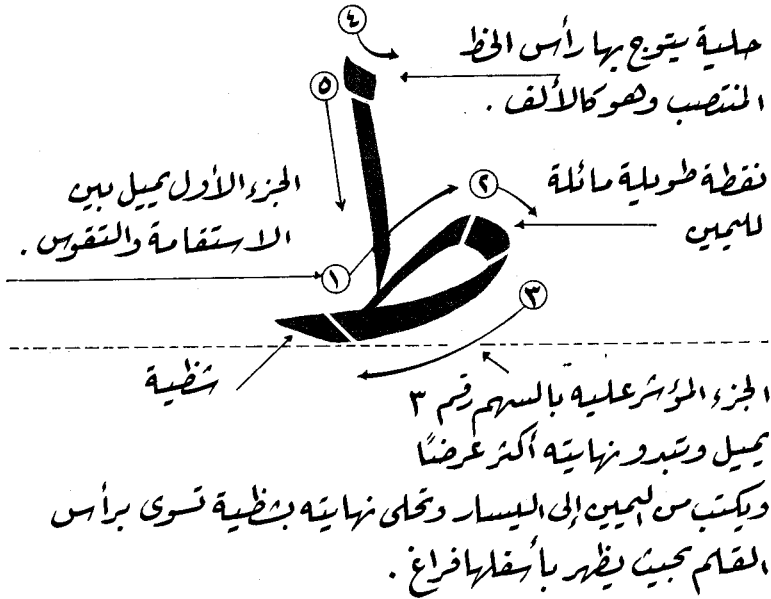 حلية يتوج بها رأس الخط
المنتصب وهو كالألف .
نقطة طويلة مائلة
لليمين
الجزء الأول يميل بين
الاستقامة والتقوس .
٤
٥
٢
١
٣
شظية
الجزء المؤشر عليه بالسهم رقم ٣
يميل وتبدو نهايته أكثر عرضًا
ويكتب من اليمين إلى اليسار وتحلى نهايته بشظية تسوى برأس
القلم بحيث يظهر بأسفلها فراغ .
ط